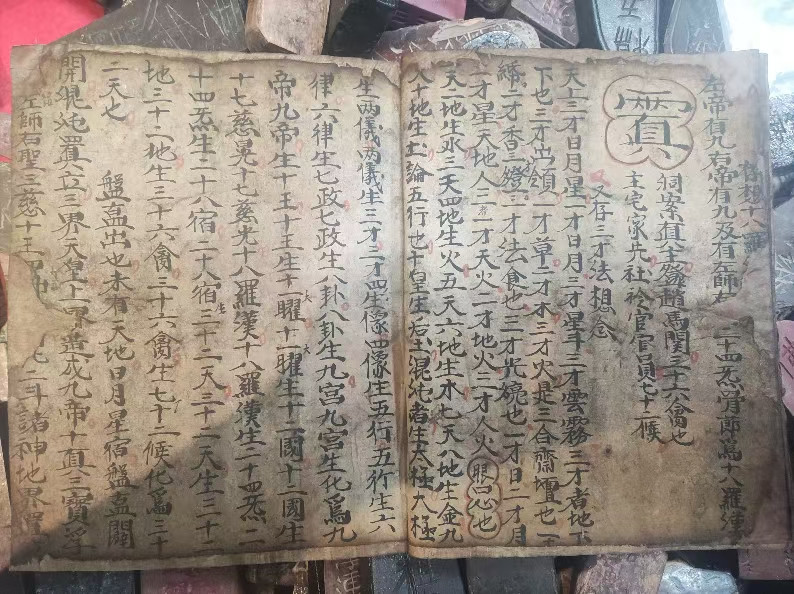 存想十八羅
左帝有九右帝有九及有左師右二十四炁骨郎為十八羅漢
洞案直全發趙馬関三十六禽也
主宅家先社衿官官員七十二候
置
又存三才法想念
天上三才日月星一才日月三才星斗三才雲霧三才者地下
下也三才出領一才草二才木三才火是三合齋壇也一
二才香三燈三才法食也三才光碗也一才日二才月
三才星天地人三才一才天火二才地火三才人火眼口心也
天一地生水三天四地生火五天六地生木七天八地生金九
天十地生土論五行也十皇生后土混沌者生太極太極
生兩儀兩儀生三才三才四生像四像生五行五行生六
律六律生七政七政生八卦八卦生九宮九宮生化為九
帝九帝生十王十王生十一曜十一曜生十二國十二國生
十七慈晃十七慈光十八羅漢十八羅漢生二十四炁二
十四炁生二十八宿二十八宿三十二天三十二天生三十二
地三十二地生三十六禽三十六禽生七十二候化為三十
二天七
盤古出也未有天地日月星宿盤古開
開混沌置立三界天皇十二眾造成九帝十真三寶浮
左師右聖三慈十王
北斗諸神地界